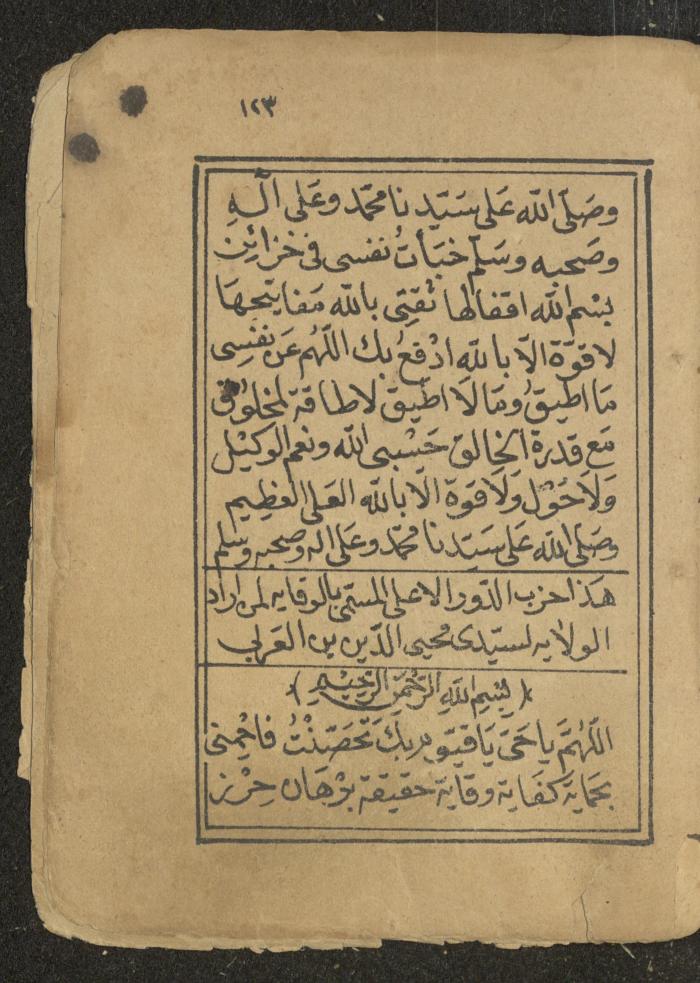 ١٢٣
وصَلّى الله عَلى سَيّدِنا محمّد وعَلى آلهِ
وصَحبه وسَلّم خبَأتُ نفسى فى خزائِن
بسْم الله اقفالها ثقتِى بالله مَفاتيحهَا
لا قوّة الّا بالله ادْفعُ بك اللّهُم عَن نفسِى
مَا اطيقُ ومَا لا اطيق لا طاقة لمخلوق
مَع قدرة الخالق حَسْبى الله ونعم الوكيْل
وَلاَ حَوْل وَلاَ قوة الّا بالله العَلى العَظِيم
وصَلى الله عَلى سَيّدنا محمّد وعَلى اله وصحبه وسلم
هَذا حزب الدّور الاعلى المسَمّى بالوقايه لمن اراد
الولايه لسيّدى محيى الدّين بن العَربى
﴿ بِسْمِ اللهِ الرَّحْمَنِ الرَّحِيْمِ ﴾
اللّهُمَّ يا حَىّ يَا قيّوم بِكَ تَحَصّنْتُ فاحْمِنى
بحمَاية كفَاية وقاية حقيقة بُرْهَان حِرْز